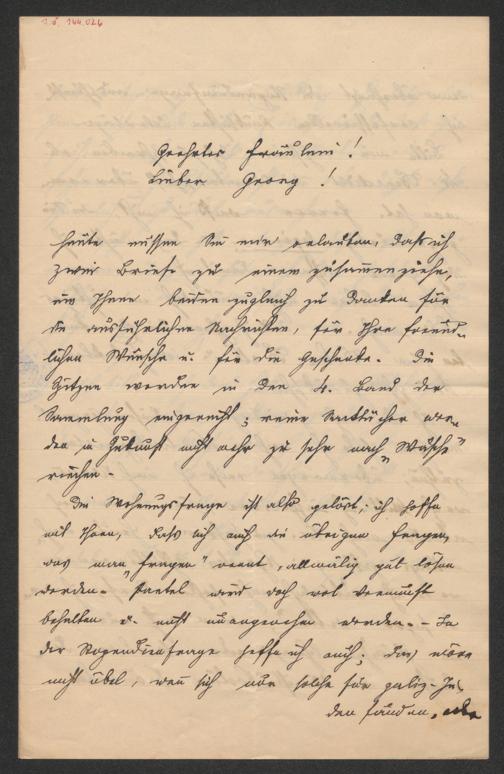 I.N. 144.026
Geehrtes Fräulein!
Lieber Georg!
Heute müssen Sie mir erlauben, daß ich
zwei Briefe zu einem zusammenziehe,
um Ihnen beiden zugleich zu danken für
die ausführlichen Nachrichten, für Ihre freund-
lichen Wünsche u. für die Geschenke. Die
Skizzen werden in den 4. Band der
Sammlung eingereiht; meine Sacktücher wer-
den in Zukunft nicht mehr zu sehr nach „Wäsche"
riechen.
Die Wohnungsfrage ist also gelöst; ich hoffe
mit Ihnen, daß sich auch die übrigen Fragen,
was man „Fragen" nennt, allmälig gut lösen
werden. wird doch wol Vernunft
behalten u. nicht unangenehm werden. - In
der frage hoffe ich auch; das wäre
nicht übel, wenn sich nur solche für galiz. Ju-
den fänden,